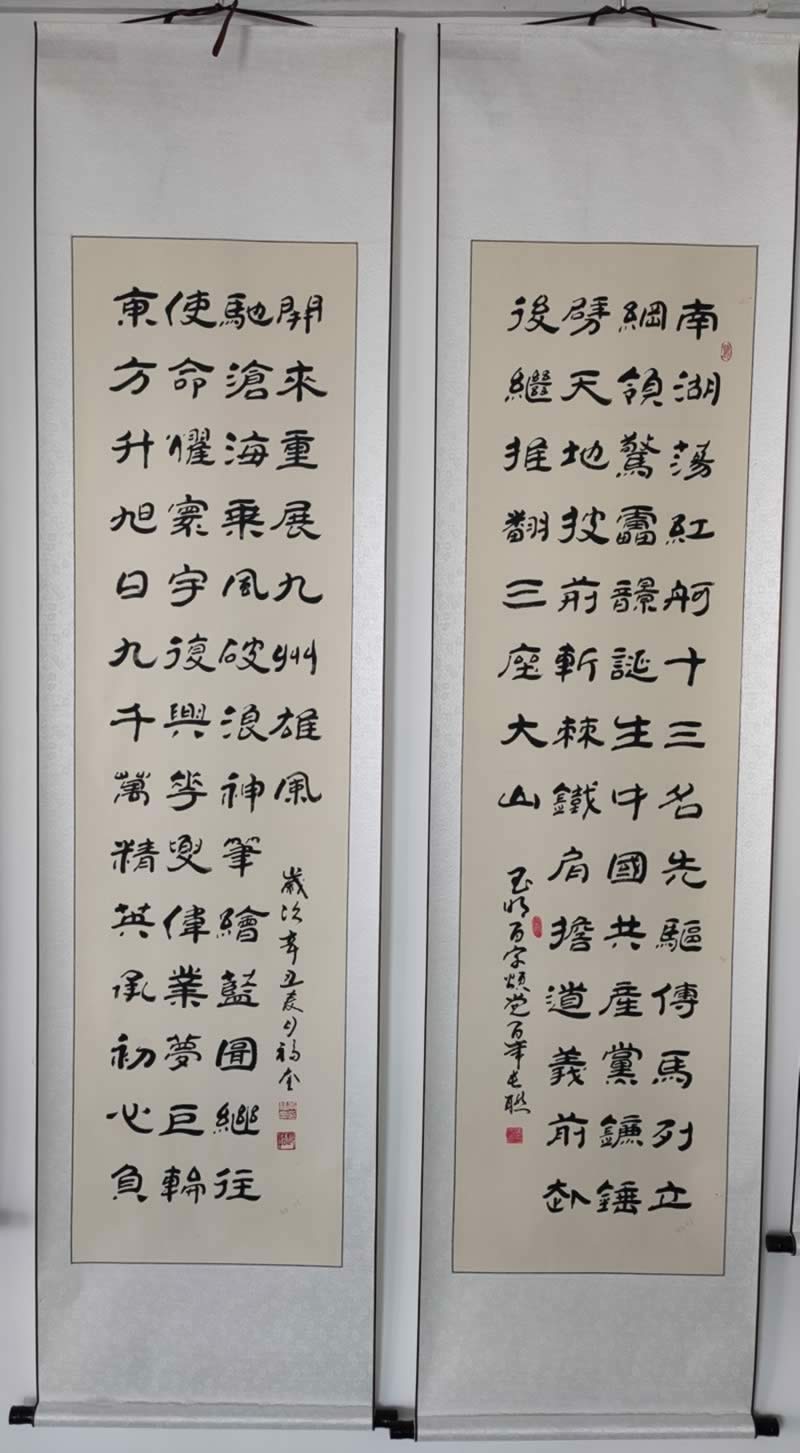 南湖蕩紅舸十三名先驅傳馬列立
綱領驚靁誕生中國共產黨鐮錘
劈天地披前斬棘鐵肩擔道義前赴
後繼推翻三座大山
百字頌党百年長聯
東方升旭日九千萬精英承初心負
使命燿寰宇復興華夏偉業夢巨輪
馳滄海乘風破浪神筆繪藍圖繼往
開來重展九州雄風
歲次辛丑夏月福奎